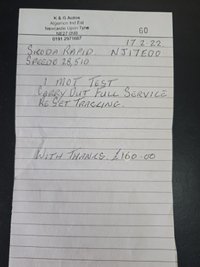 K & G Autos
Algernon Ind Est
Newcastle Upon Tyne
NE27 0NB
0191 2971687
60
17 2 22
SKODA RAPID. NJ17EOO
SPEEDO 28,510
1 MOT TEST
CARRY OUT FULL SERVICE
RESET TRACKING.
WITH THANKS. £160-00